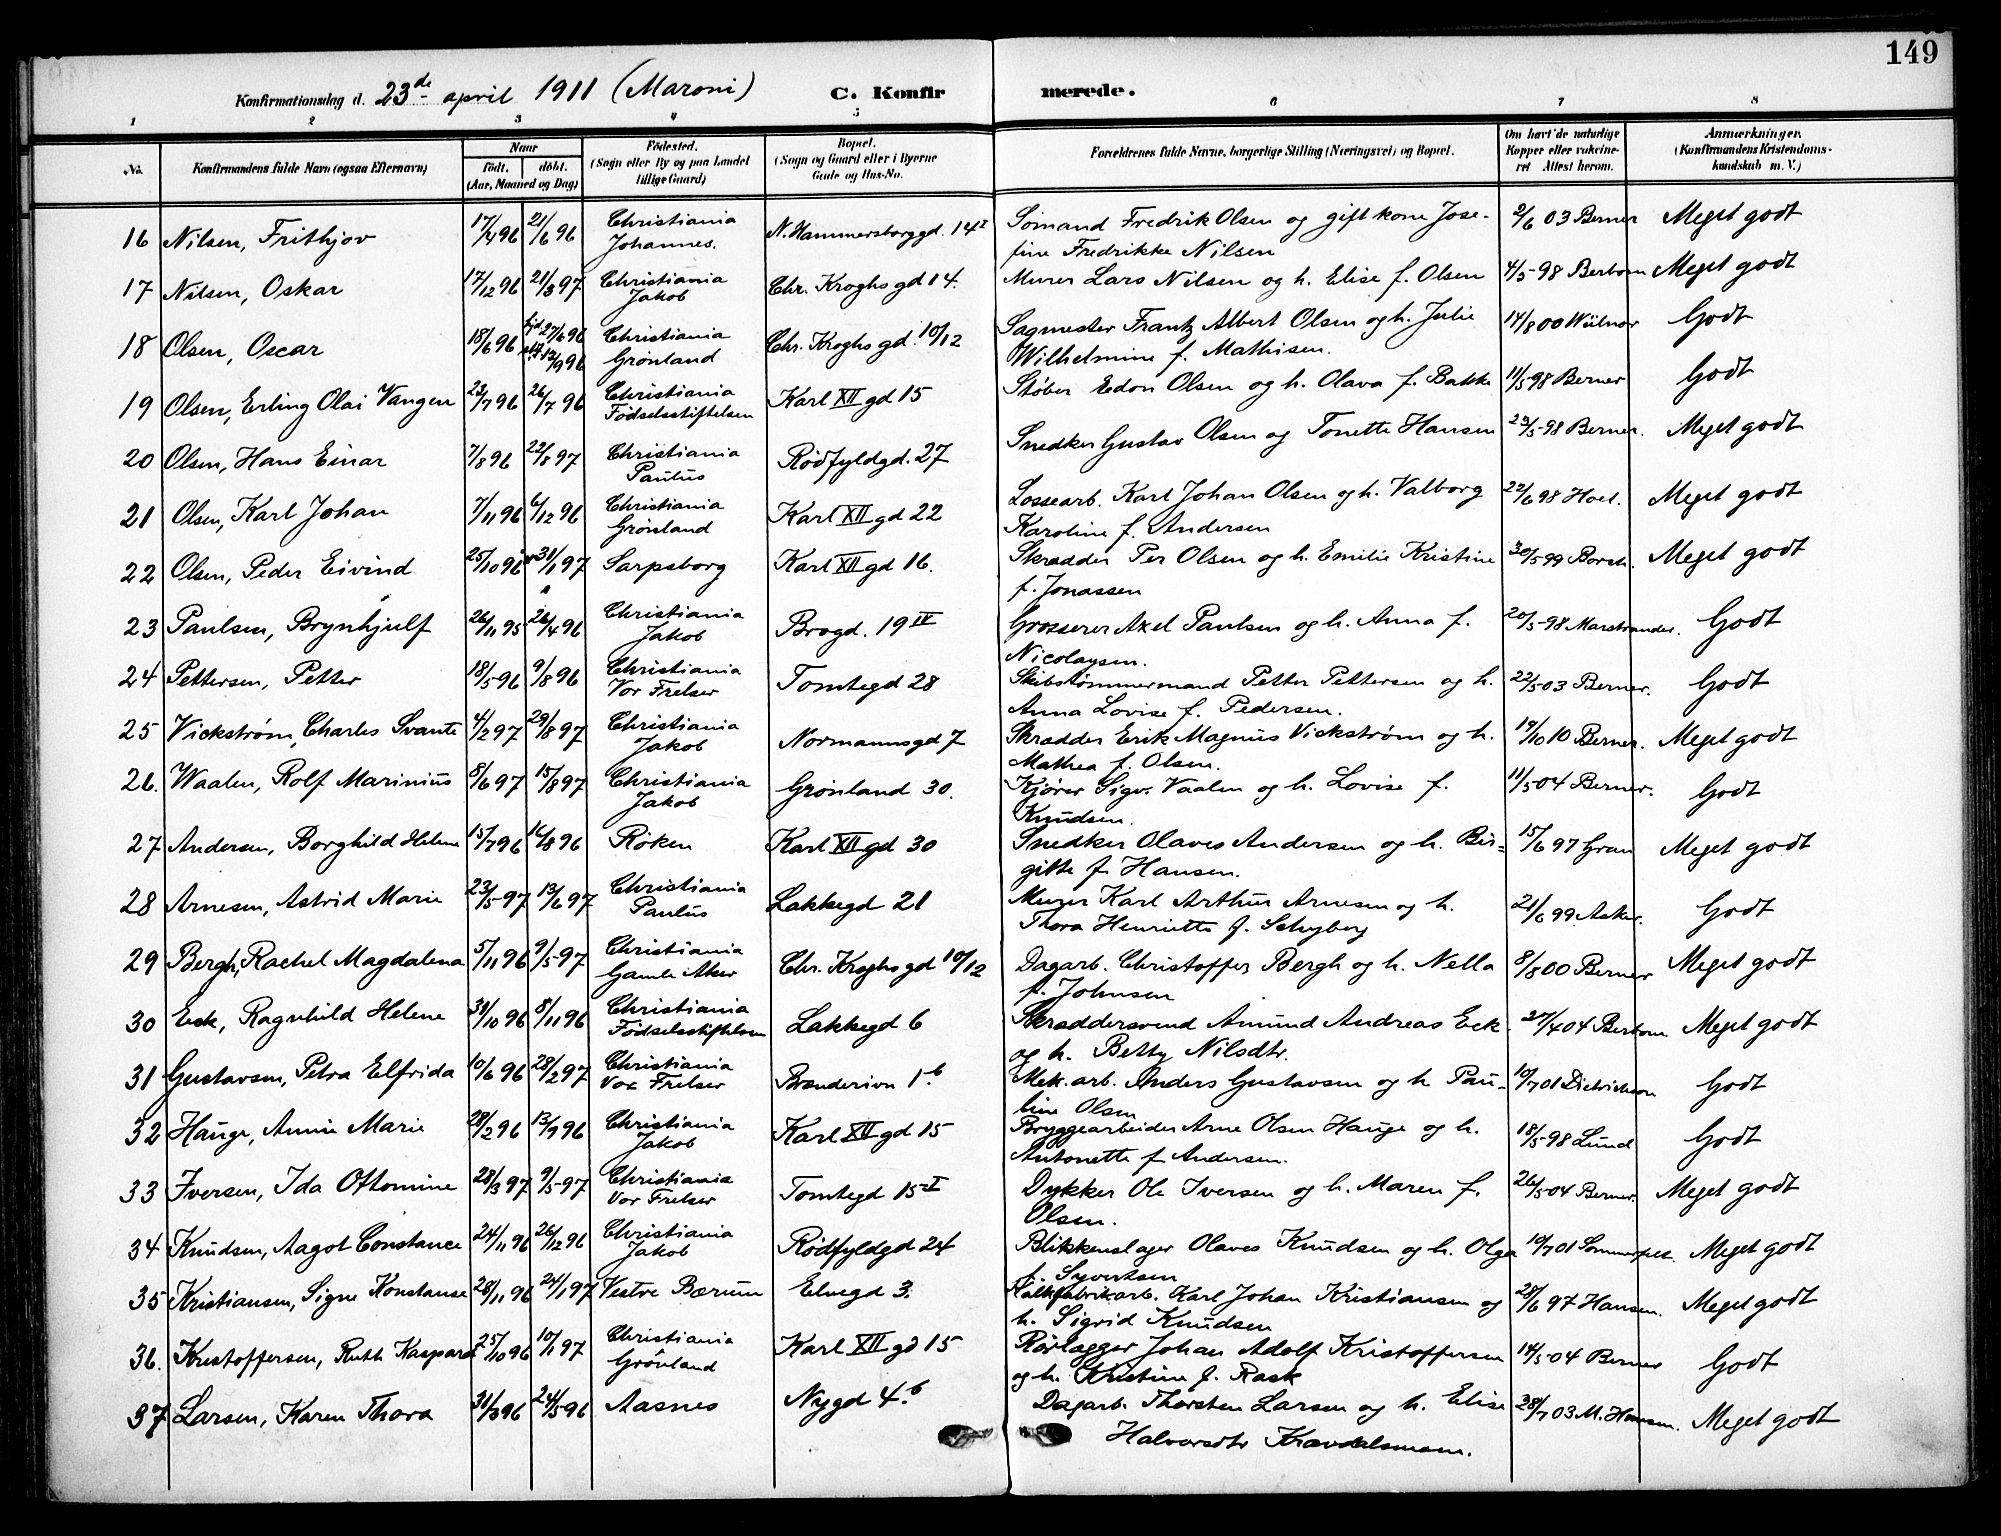 149
Konfirmationsdag d. 23de april 1911 (Maroni) C. Konfirmerede.
1 2 3 4 5 6 7 8
No. Konfirmandens fulde Navn (ogsaa Efternavn) Naar født. døbt. (Aar, Maaned og Dag) Fødested. (Sogn eller By og paa Landet tillige Gaard) Bopæl. (Sogn og Gaard eller i Byerne Gade og Hus-No. Forældrenes fulde Navne, borgerlige Stilling (Næringsvei) og Bopæl. Om havt de naturlige Kopper eller vakcineret Attest herom. Anmærkninger. (Konfirmandens Kristendomskundskab m. V.)
16 Nilsen, Frithjov 17/4 96 21/6 96 Christiania Johannes. N. Hammersborggd. 14 I Sømand Fredrik Olsen og gift kone Josefine Fredrikke Nilsen 2/6 03 Berner Meget godt
17 Nilsen, Oskar 17/12 96 21/3 97 Christiania Jakob Chr. Kroghsgd 14. Murer Lars Nilsen og h. Elise f. Olsen 4/5-98 Berbom Meget godt
18 Olsen, Oscar 18/6 96 hjd 27/6 96 13/9 96 Christiania Grønland Chr. Kroghsgd. 10/12 Sagmester Frantz Albert Olsen og h. Julie Wilhelmine f. Mathisen. 14/8 00 Godt
19 Olsen, Erling Olai Vangen 23/7 96 26/7 96 Christiania Fødselsstiftelsen Karl XII gd 15 Støber Edon Olsen og h. Olava f. Bakke 11/5 98 Berner Godt
20 Olsen, Hans Einar 7/8 96 22/8 97 Christiania Paulus Rødfyldgd. 27 Snedker Gustav Olsen og Tonette Hansen 23/5-98 Berner. Meget godt
21 Olsen, Karl Johan 7/11 96 6/12 96 Christiania Grønland Karl XII gd 22 Lossearb. Karl Johan Olsen og h. Valborg Karoline f. Andersen 22/6 98 Hoel. Meget godt
22 Olsen, Peder Eivind 25/10 96 31/1 97 Sarpsborg Karl XII gd 16. Skrædder Per Olsen og h. Emilie Kristine f. Jonassen 30/5 99 Borch. Meget godt
23 Paulsen, Brynhjulf 26/11 95 26/4 96 Christiania Jakob Brogd. 19 IV Grosserer Axel Paulsen og h. Anna f. Nicolaysen. 20/5-98 Marstrander. Godt
24 Pettersen, Petter 18/5-96 9/8 96 Christiania Vor Frelser Tomtegd 28 Skibstømmermand Petter Pettersen og h. Anna Lovise f. Pedersen. 22/5 03 Berner. Godt
25 Vickstrøm, Charles Svante 4/2 97 29/8 97 Christiania Jakob Normannsgd 7 Skrædder Erik Magnus Vickstrøm og h. Mathea f. Olsen. 19/10 10 Berner. Meget godt
26. Waalen, Rolf Marinius 8/6 97 15/8 97 Christiania Jakob Grønland 30. Kjører Sigv. Vaalen og h. Lovise f. Knudsen. 11/5 04 Berner. Godt
27 Andersen, Borghild Helene 15/7 96 16/8 96 Røken Karl XII gd 30 Snedker Olaves Andersen og h. Birgitte f. Hansen. 15/6 97 Gran Meget godt
28 Arnesen, Astrid Marie 23/5-97 13/6 97 Christiania Paulus Lakkegd 21 Murer Karl Arthur Arnesen og h. Thora Henriette f. Schyberg 21/6 99 Asker. Godt
29 Bergh, Rachel Magdalena 5/11 96 9/5-97 Christiania Gamle Aker Chr. Kroghsgd 10/12 Dagarb. Christoffer Bergh og h. Nella f. Johnsen 8/8 00 Berner Meget godt
30 Eek, Ragnhild Helene 31/10 96 8/11 96 Christiania Fødselsstiftelsen Lakkegd 6 Skræddersvend Amund Andreas Eek og h. Betty Nilsdtr. 27/4 04 Berbom Meget godt
31 Gustavsen, Petra Elfrida 10/6 96 28/2 97 Christiania Vor Frelser Brenderivn 1.b Mek. arb. Anders Gustavsen og h Pauline Olsen 10/7 01 Dietrichson Godt
32 Hauge, Annie Marie 28/2 96 13/9 96 Christiania Jakob Karl XII gd 15 Bryggearbeider Arne Olsen Hauge og h. Antonette f Andersen. 18/5-98 Lund Godt
33 Iversen, Ida Ottomine 28/3 97 9/5-97 Christiania Vor Frelser Tomtegd 15 I Dykker Ole Iversen og h. Maren f. Olsen. 26/5-04 Berner. Meget godt
34 Knudsen, Aagot Constance 24/11 96 26/12 96 Christiania Jakob Rødfyldgd 24 Blikkenslager Olaves Knudsen og h. Olga f. Syvertsen 10/7 01 Sommerfelt. Meget godt
35 Kristiansen, Signe Konstanse 28/11 96 24/1 97 Vestre Bærum Elvegd 3. Kalkfabrikarb. Karl Johan Kristiansen og h. Sigrid Knudsen 28/6 97 Hansen. Meget godt
36. Kristoffersen, Ruth Kaspara 25/10 96 10/1 97 Christiania Grønland Karl XII gd 15 Rørlægger Johan Adolf Kristoffersen og h. Kristine f. Rask 14/5-04 Berner Godt
37 Larsen, Karen Thora 31/3 96 24/5 96 Aasnes Nygd 4.b Dagarb. Thorsten Larsen og h. Elise Halvorsdtr 28/7 03 M. Hansen. Meget godt